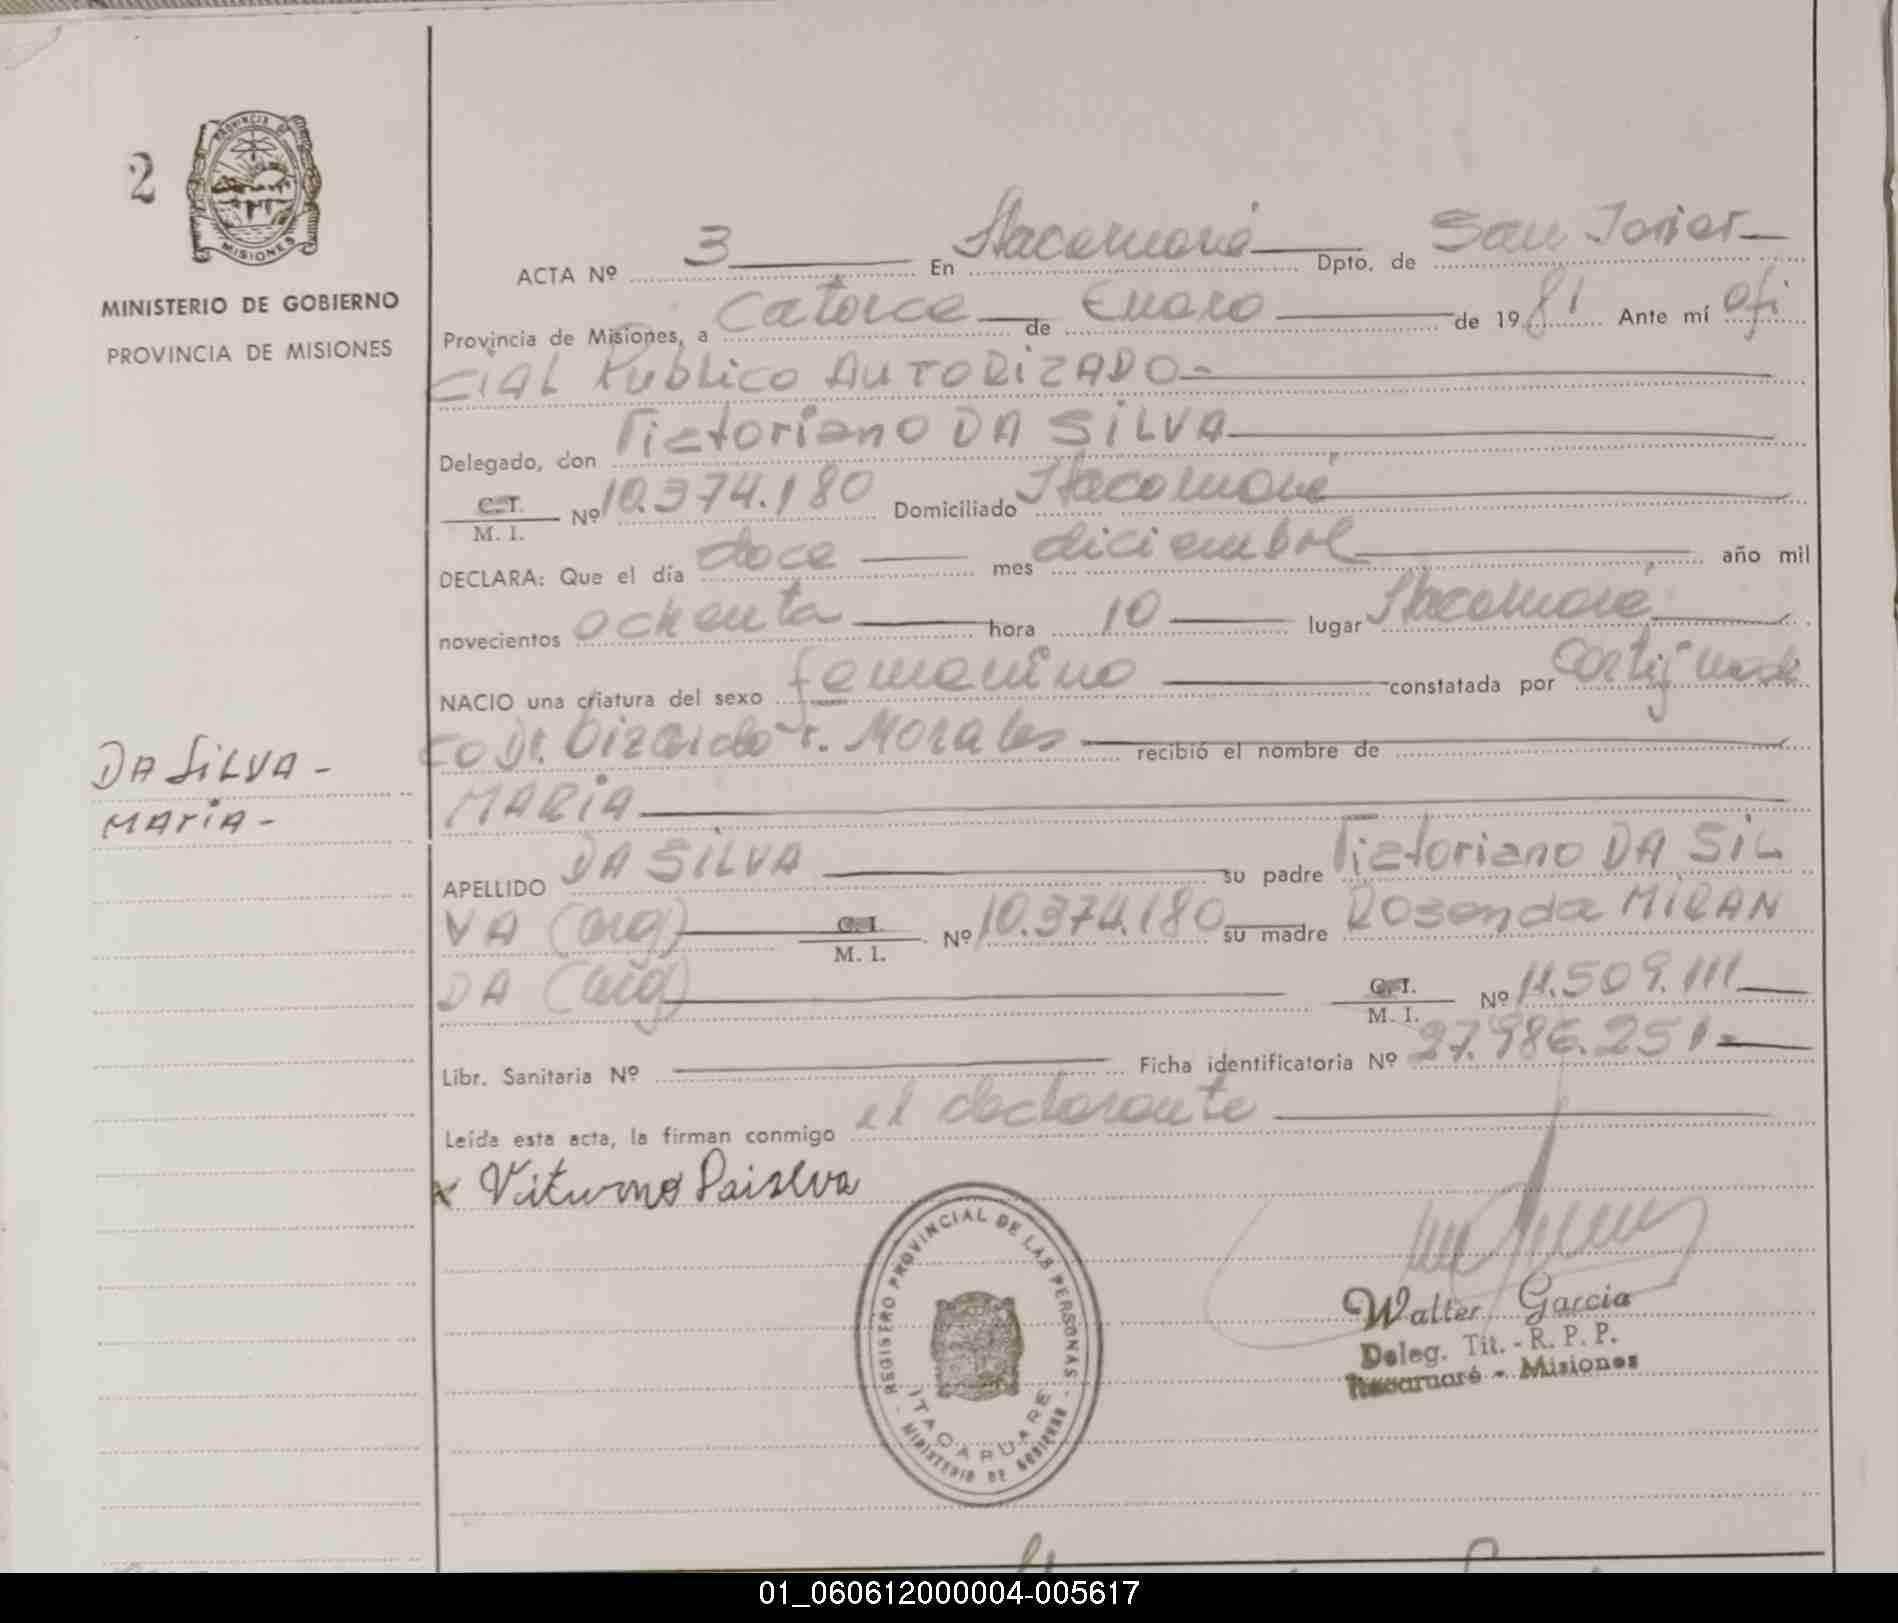 2
PROVINCIA DE
MISIONES
MINISTERIO DE GOBIERNO
PROVINCIA DE MISIONES
DA SiLVA -
MAriA -
ACTA Nº 3 En Itacaruaré Dpto. de San Javier
Provincia de Misiones, a Catorce de Enero de 1981 Ante mí ofi
CIAL Publico AUTORIZADO-
Delegado, don Victoriano DA SiLVA
C.I. M. I. Nº 10.374.180 Domiciliado Itacaruaré
DECLARA: Que el día doce mes diciembre año mil
novecientos ochenta hora 10 lugar Itacaruaré
NACIO una criatura del sexo femenino constatada por
co Dr. Morales recibió el nombre de
MARIA
APELLIDO DA SILVA su padre Victoriano DA SIL
VA (arg) C.I. M. I. Nº 10.374.180 su madre Rosenda MIRAN
DA (arg) C.I. M. I. Nº 11.509.111
Libr. Sanitaria Nº Ficha identificatoria Nº 27.986.251-
Leída esta acta, la firman conmigo el declarante
x
REGISTRO PROVINCIAL DE LAS PERSONAS
ITACARUARE
- MINISTERIO DE GOBIERNO -
Walter Garcia
Deleg. Tit. - R. P. P.
Itacaruaré - Misiones
01_060612000004-005617